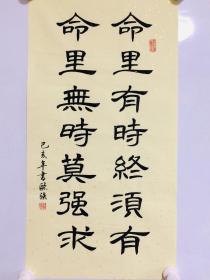 命里有時終須有
命里無時莫强求
己亥年書